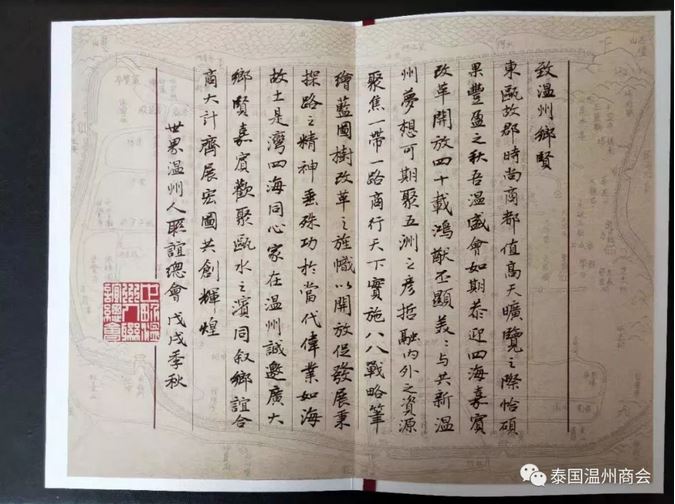 致温州鄉賢
東甌故郡時尚商都值高天曠覽之際恰碩
果豐盈之秋吾温盛會如期恭迎四海嘉賓
改革開放四十載鴻猷丕顯美〻与共新温
州夢想可期聚五洲之彥哲融内外之資源
聚焦一帶一路商行天下實施八八戰略筆
繪藍圖樹改革之旌幟以開放促發展秉
探路之精神垂殊功於當代偉業如海
故土是灣四海同心家在温州誠邀廣大
鄉賢嘉賓歡聚甌水之濱同叙鄉誼合
商大計齊展宏圖共創輝煌
世界温州人聯誼總會 戊戌季秋
世界温州人聯誼總會
泰国温州商会